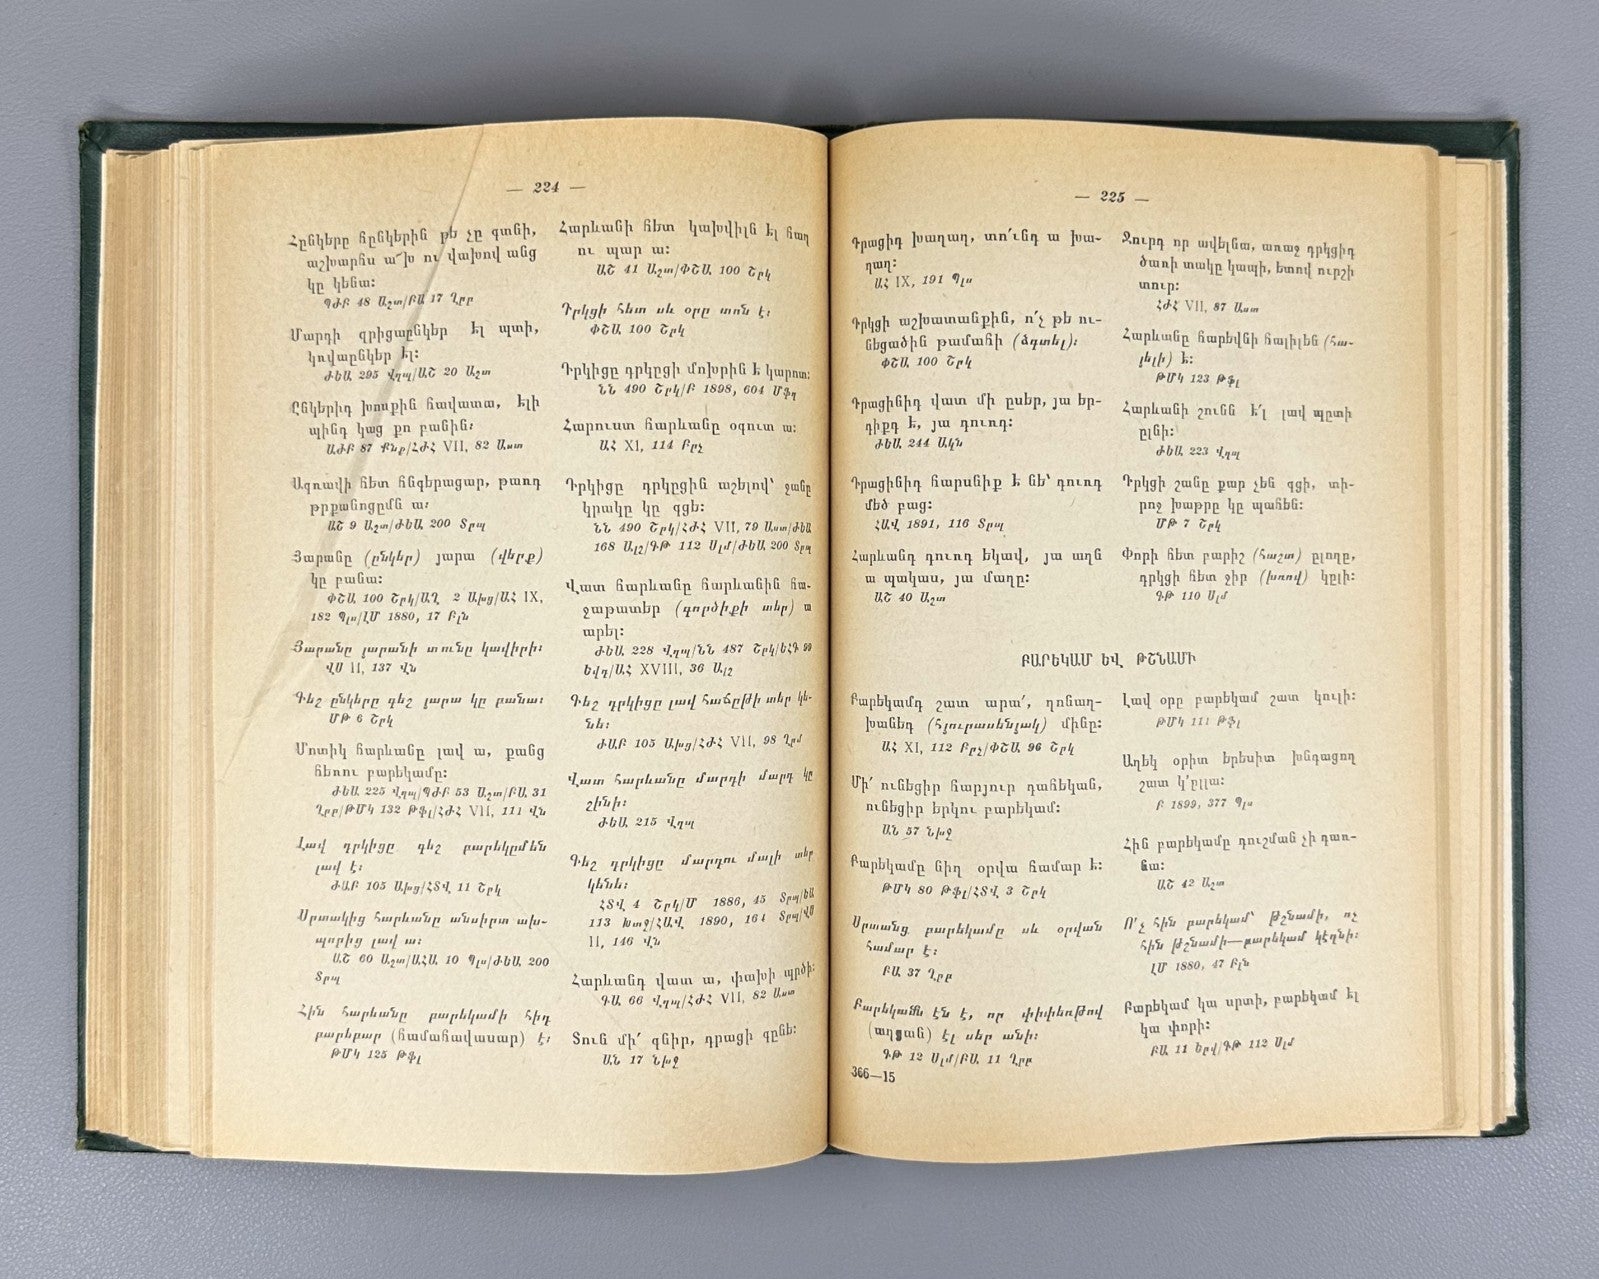 — 224 —
Հընկերը հընկերին թե չը գտնի,
աշխարհս ա՜խ ու վախով անց
կը կենա:
ՊԺԲ 48 Աշտ/ԲԱ 17 Ղրբ
Մարդի գրիցաընկեր էլ պտի,
կովաընկեր էլ:
ԺԵԱ 295 Վղպ/ԱՇ 20 Աշտ
Ընկերիդ խոսքին հավատա, էլի
պինդ կաց քո բանին:
ԱԺԲ 87 Քնք/ՀԺՀ VII, 82 Աստ
Ագռավի հետ հնգերացար, թառդ
թրքանոցըմն ա:
ԱՇ 9 Աշտ/ԺԵԱ 200 Տրպ
Յարանը (ընկեր) յարա (վերք)
կը բանա:
ՓՇԱ 100 Շրկ/ԱՂ 2 Ախց/ԱՀ IX,
182 Պլս/ԼՄ 1880, 17 Բլն
Յարանը յարանի տունը կավիրի:
ՎՍ II, 137 Վն
Գեշ ընկերը գեշ յարա կը բանա:
ՄԹ 6 Շրկ
Մոտիկ հարևանը լավ ա, քանց
հեռու բարեկամը:
ԺԵԱ 225 Վղպ/ՊԺԲ 53 Աշտ/ԲԱ 31
Ղրբ/ԹՄԿ 132 Թֆլ/ՀԺՀ VII, 111 Վն
Լավ դրկիցը գեշ բարեկըմեն
լավ է:
ԺԱԲ 105 Ախց/ՀՏՎ 11 Շրկ
Սրտակից հարևանը անսիրտ ախ-
պորից լավ ա:
ԱՇ 60 Աշտ/ԱՀԱ 10 Պլս/ԺԵԱ 200
Տրպ
Հին հարևանը բարեկամի հիդ
բարեբար (համահավասար) է:
ԹՄԿ 125 Թֆլ
Հարևանի հետ կախվիլն էլ հաղ
ու պար ա:
ԱՇ 41 Աշտ/ՓՇԱ 100 Շրկ
Դրկցի հետ սև օրը տոն է:
ՓՇԱ 100 Շրկ
Դրկիցը դրկըցի մոխրին է կարոտ:
ՆՆ 490 Շրկ/Բ 1898, 604 Մֆղ
Հարուստ հարևանը օգուտ ա:
ԱՀ XI, 114 Բրչ
Դրկիցը դրկըցին աշելով՝ ջանը
կրակը կը գցե:
ՆՆ 490 Շրկ/ՀԺՀ VII, 79 Աստ/ԺԵԱ
168 Ալշ/ԳԹ 112 Սլմ/ԺԵԱ 200 Տրպ
Վատ հարևանը հարևանին հա-
ջաթատեր (գործիքի տեր) ա
արել:
ԺԵԱ 228 Վղպ/ՆՆ 487 Շրկ/ԵՀԳ 99
Եվդ/ԱՀ XVIII, 36 Ալշ
Գեշ դրկիցը լավ հաճըթի տեր կե-
նե:
ԺԱԲ 105 Ախց/ՀԺՀ VII, 98 Ղրմ
Վատ հարևանը մարդի մարդ կը
շինի:
ԺԵԱ 215 Վղպ
Գեշ դրկիցը մարդու մալի տեր
կենե:
ՀՏՎ 4 Շրկ/Մ 1886, 45 Տրպ/ԵԱ
113 Խտջ/ՀԱՎ 1890, 164 Տրպ/ՎՍ
II, 146 Վն
Հարևանդ վատ ա, փախի պրծի:
ԳԱ 66 Վղպ/ՀԺՀ VII, 82 Աստ
Տուն մի՛ գնիր, դրացի գընե:
ԱՆ 17 Նխջ
— 225 —
Դրացիդ խաղաղ, տո՛ւնդ ա խա-
ղաղ:
ԱՀ IX, 191 Պլս
Դրկցի աշխատանքին, ո՛չ թե ու-
նեցածին թամահի (ձգտել):
ՓՇԱ 100 Շրկ
Դրացինիդ վատ մի ըսեր, յա եր-
դիքդ է, յա դուռդ:
ԺԵԱ 244 Ակն
Դրացինիդ հարսնիք է նե՝ դուռդ
մեծ բաց:
ՀԱՎ 1891, 116 Տրպ
Հարևանդ դուռդ եկավ, յա աղն
ա պակաս, յա մաղը:
ԱՇ 40 Աշտ
Ջուրդ որ ավելնա, առաջ դրկցիդ
ծառի տակը կապի, ետով ուրշի
տուր:
ՀԺՀ VII, 87 Աստ
Հարևանը հարեվնի հալիլեն (հա-
լելի) է:
ԹՄԿ 123 Թֆլ
Հարևանի շունն է՛լ լավ պըտի
ըլնի:
ԺԵԱ 223 Վղպ
Դրկցի շանը քար չեն գցի, տի-
րոջ խաթրը կը պահեն:
ՄԹ 7 Շրկ
Փորի հետ բարիշ (հաշտ) ըլողը,
դրկցի հետ ջիր (խռով) կըլի:
ԳԹ 110 Սլմ
ԲԱՐԵԿԱՄ ԵՎ ԹՇՆԱՄԻ
Բարեկամդ շատ արա՛, ղոնաղ-
խանեդ (հյուրասենյակ) մինը:
ԱՀ XI, 112 Բրչ/ՓՇԱ 96 Շրկ
Մի՛ ունեցիր հարյուր դահեկան,
ունեցիր երկու բարեկամ:
ԱՆ 57 Նխջ
Բարեկամը նիղ օրվա համար է:
ԹՄԿ 80 Թֆլ/ՀՏՎ 3 Շրկ
Սրտանց բարեկամը սև օրվան
համար է:
ԲԱ 37 Ղրբ
Բարեկամն էն է, որ փիփեռթով
(աղցան) էլ սեր անի:
ԳԹ 12 Սլմ/ԲԱ 11 Ղրբ
366—15
Լավ օրը բարեկամ շատ կուլի:
ԹՄԿ 111 Թֆլ
Աղեկ օրիտ երեսիտ խնդացող
շատ կ՛ըլլա:
Բ 1899, 377 Պլս
Հին բարեկամը դուշման չի դառ-
նա:
ԱՇ 42 Աշտ
Ո՛չ հին բարեկամ՝ թշնամի, ոչ
հին թշնամի—բարեկամ կէղնի:
ԼՄ 1880, 47 Բլն
Բարեկամ կա սրտի, բարեկամ էլ
կա փորի:
ԲԱ 11 Երվ/ԳԹ 112 Սլմ